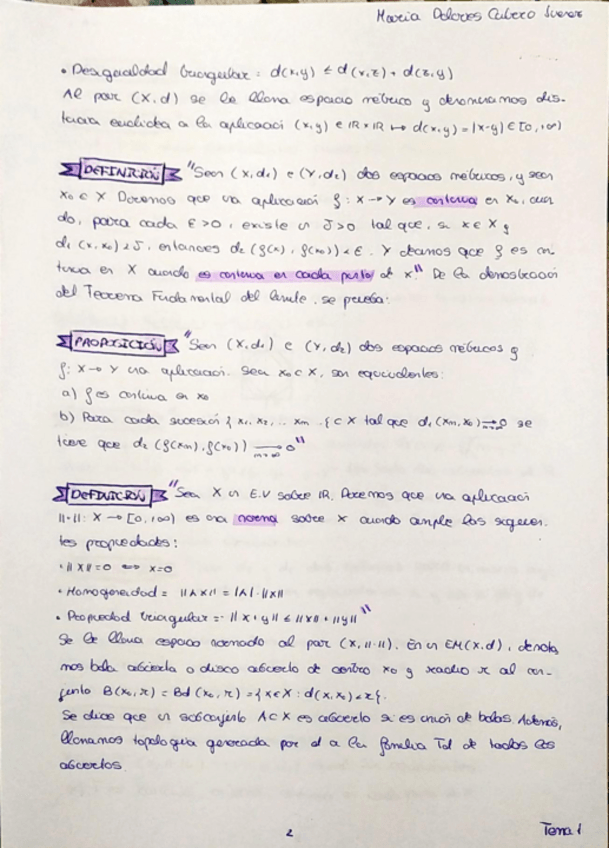 Maria Dolores Cubero
• Desigualdad triangular: d(x,y) ≤ d(x,z) + d(z,y)
Al par (X,d) se le llama espacio métrico y denominamos dis-
tancia euclídea a la aplicación (x,y) ∈ IR×IR ↦ d(x,y) = |x-y| ∈ [0,∞)
DEFINICIÓN "Sean (X,d₁) e (Y,d₂) dos espacios métricos, y sean
x₀ ∈ X Decimos que una aplicación f: X → Y es continua en x₀, cuan
do, para cada ε>0, existe un δ>0 tal que, si x ∈ X y
d₁(x,x₀) < δ, entonces d₂(f(x), f(x₀)) < ε. Y decimos que f es con-
tinua en X cuando es continua en cada punto de X." De la demostración
del Teorema Fundamental del límite, se prueba:
PROPOSICIÓN "Sean (X,d₁) e (Y,d₂) dos espacios métricos y
f: X → Y una aplicación. Sea x₀ ∈ X, son equivalentes:
a) f es continua en x₀
b) Para cada sucesión {x₁, x₂, ... xₘ..{ ⊂ X tal que d₁(xₘ,x₀) →₀ se
tiene que d₂(f(xₘ), f(x₀)) → 0"
m→∞
DEFINICIÓN "Sea X un E.V sobre IR. Decimos que una aplicación
||·||: X → [0,∞) es una norma sobre X cuando cumple las siguien-
tes propiedades:
• ||x||=0 ⟺ x=0
• Homogeneidad = ||λx|| = |λ|·||x||
• Propiedad triangular =· ||x+y|| ≤ ||x|| + ||y||"
Se le llama espacio normado al par (X,||·||). En un EM(X,d), denota
mos bola abierta o disco abierto de centro x₀ y radio r al con-
junto B(x₀,r) = Bd(x₀,r) = {x∈X: d(x,x₀)<r}.
Se dice que un subconjunto A⊂X es abierto si es unión de bolas. Además,
llamamos topología generada por d a la familia Td de todos los
abiertos.
2
Tema 1